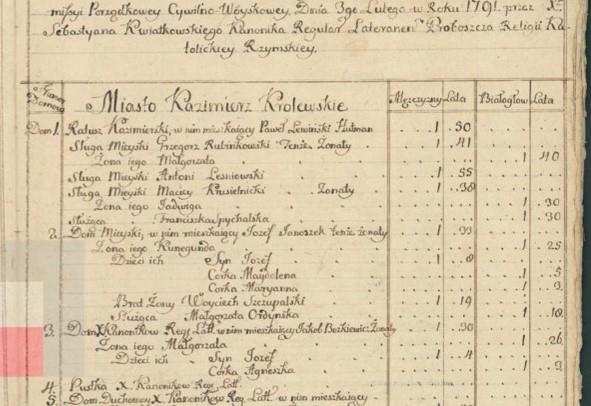 missyi Porządkowey Cywilno-Woyskowey, Dnia 3go Lutego w Roku 1791. przez X.
Sebastyana Kwiatkowskiego Kanonika Regular Lateranen. Proboszcza Religii Ka-
tolickiey Rzymskiey.
Miasto Kazimierz Krolewskie Męszczyzny Lata Białogłow Lata
Dom 1. Ratusz Kazimierski, w nim mieszkaiący Paweł Lewiński Hutman 1 50
Sługa Mieyski Grzegorz Rubinkowski Tenże Żonaty 1 41
Żona iego Małgorzata 1 40
Sługa Mieyski Antoni Leśniowski 1 55
Sługa Mieyski Maciey Krusielnicki Żonaty 1 38
Żona iego Jadwiga 1 30
Służąca Franciszka Spychalska 1 30
2. Dom Mieyski, w nim mieszkaiący Jozef Janoszek tenże żonaty 1 33
Żona iego Kunegunda 1 25
Dzieci ich Syn Jozef 1 8
Corka Maydalena 1 5
Corka Maryanna 1 3
Brat Żony Woyciech Szczupalski 1 19
Służąca Małgorzata Ordynika 1 18
3. Dom X Kanonikow Reg: Latt. w nim mieszkaiący Jakob Berkiewicz Żonaty 1 30
Żona iego Małgorzata 1 26
Dzieci ich Syn Jozef 1 4
Corka Agnieszka 1 2
4. Pustka X. Kanonikow Reg. Latt.
5. Dom Duchowny X. Kanonikow Reg. Latt. w nim mieszkaiący